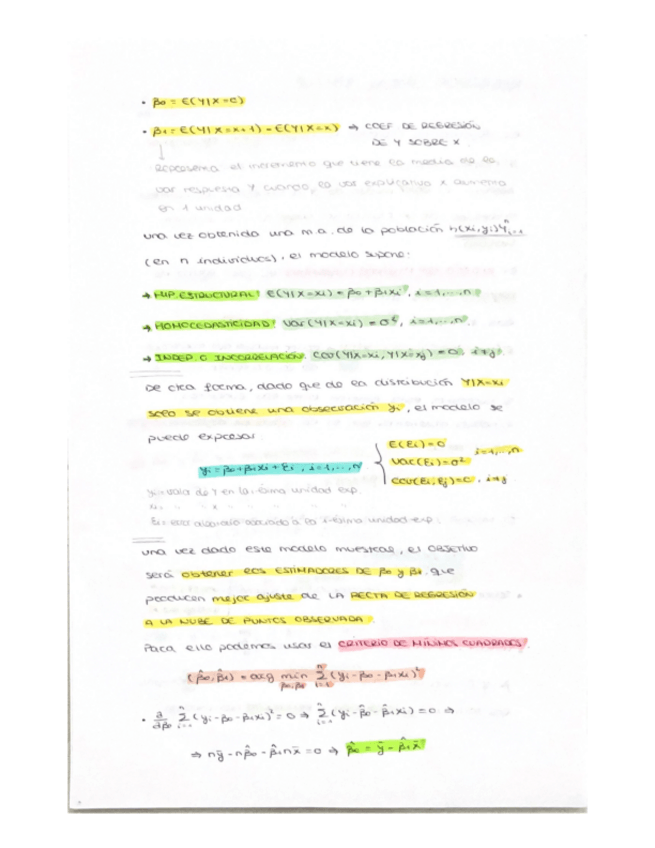 • β₀ = E(Y|X=0)
• β₁ = E(Y|X=x+1) - E(Y|X=x) ⇒ COEF DE REGRESIÓN
DE Y SOBRE X
↓
Representa el incremento que tiene la media de la
var respuesta Y cuando la var explicativa x aumenta
en 1 unidad
Una vez obtenida una m.a. de la población {(xi,yi)}ⁿᵢ₌₁
(en n individuos), el modelo supone:
→ HIP. ESTRUCTURAL: E(Y|X=xi) = β₀ + β₁xi, i=1,...,n
→ HOMOCEDASTICIDAD: Var(Y|X=xi) = σ², i=1,...,n
→ INDEP. O INCORRELACIÓN: Cov(Y|X=xi, Y|X=xj) = 0, i≠j
De otra forma, dado que de la distribución Y|X=xi
solo se obtiene una observación yi, el modelo se
puede expresar:
yi = β₀ + β₁xi + εi, i=1,...,n
E(εi) = 0
Var(εi) = σ² i=1,...,n
Cov(εi, εj) = 0, i≠j
yi = valor de Y en la i-ésima unidad exp.
xi = " " x " " " "
εi = error aleatorio asociado a la i-ésima unidad exp.
Una vez dado este modelo muestral, el OBJETIVO
será obtener los ESTIMADORES DE β₀ y β₁ que
producen mejor ajuste de LA RECTA DE REGRESIÓN
A LA NUBE DE PUNTOS OBSERVADA.
Para ello podemos usar el CRITERIO DE MÍNIMOS CUADRADOS
(β̂₀, β̂₁) = arg min_{β₀,β₁} Σⁿᵢ₌₁ (yi - β₀ - β₁xi)²
• d/dβ₀ Σⁿᵢ₌₁ (yi - β₀ - β₁xi)² = 0 ⇒ Σⁿᵢ₌₁ (yi - β̂₀ - β̂₁xi) = 0 ⇒
⇒ nȳ - nβ̂₀ - β̂₁nx̄ = 0 ⇒ β̂₀ = ȳ - β̂₁x̄